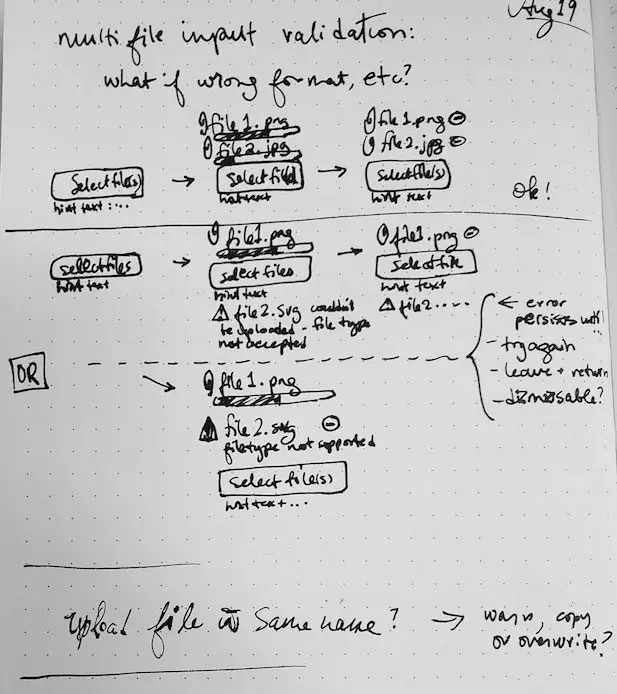 Aug 19
multi file input validation:
what if wrong format, etc?
file 1.png
file 2.jpg
file 1.png
file 2.jpg
Select file(s)
hint text ...
Select file
hint text
Select file(s)
hint text
Ok!
file1.png
file1.png
Select files
hint text
Select files
hint text
Select file
hint text
file2.svg couldn't
be uploaded - file type
not accepted
file2.....
← error
persists until...
- try again
- leave + return
- dismissable?
OR
file 1.png
file 2.svg
filetype not supported
Select file(s)
hint text ...
Upload file w same name?
→ warn, copy
or overwrite?